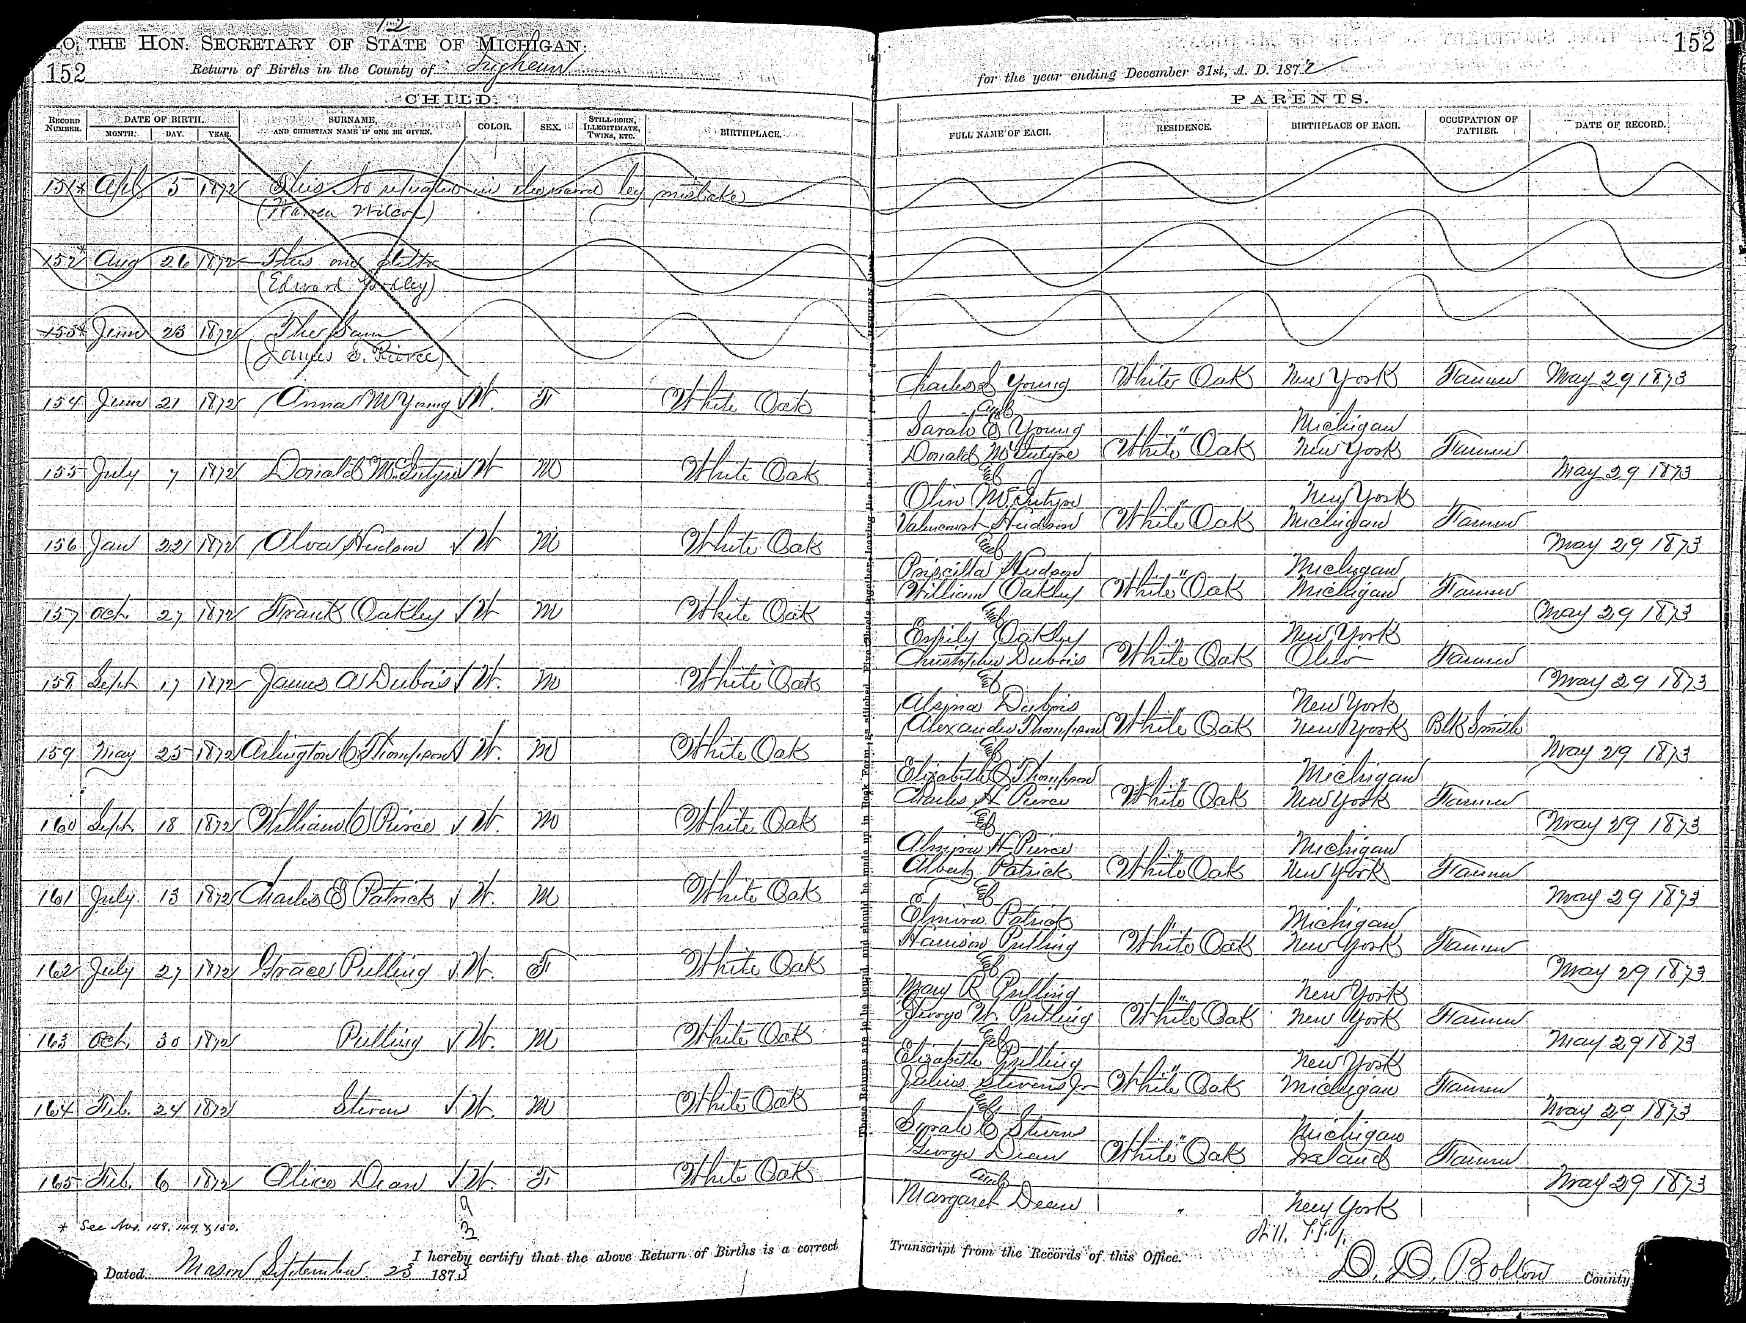 12
TO THE HON. SECRETARY OF STATE OF MICHIGAN:
152
Return of Births in the County of Ingham
for the year ending December 31st, A. D. 1872
152
CHILD.
PARENTS.
RECORD NUMBER. DATE OF BIRTH. MONTH. DAY. YEAR. SURNAME, AND CHRISTIAN NAME IF ONE BE GIVEN. COLOR. SEX. STILL-BORN, ILLEGITIMATE, TWINS, ETC. BIRTHPLACE. FULL NAME OF EACH. RESIDENCE. BIRTHPLACE OF EACH. OCCUPATION OF FATHER. DATE OF RECORD.
151* Apl 5 1872 This No in by mistake
(Warren Wilcox)
152* Aug 26 1872 This one
(Edward
153* June 23 1872 The Same
(James S. Pierce)
Charles S Young White Oak New York Farmer May 29 1873
154 June 21 1872 Anna M Young √ W. F White Oak
and
Sarah E Young " Michigan
Donald McIntyre White Oak New York Farmer
155 July 7 1872 Donald McIntyre √ W M White Oak May 29 1873
&
Olin McIntyre " New York
Hudson White Oak Michigan Farmer
156 Jan 22 1872 Alva Hudson √ W M White Oak May 29 1873
&
Priscilla Hudson " Michigan
William Oakley White Oak Michigan Farmer
157 Oct. 27 1872 Frank Oakley √ W M White Oak May 29 1873
&
Emily Oakley New York
Christopher Dubois White Oak Ohio Farmer
158 Sept 17 1872 James A Dubois √ W. M White Oak May 29 1873
&
Alzina Dubois New York
Alexander Thompson White Oak New York Blk Smith
159 May 25 1872 Arlington C Thompson √ W. M White Oak May 29 1873
&
Elizabeth Q Thompson " Michigan
Charles H Pierce White Oak New York Farmer
160 Sept 18 1872 William C Pierce √ W. M White Oak May 29 1873
&
Almira H. Pierce " Michigan
Albert Patrick White Oak New York Farmer
161 July 13 1872 Charles E Patrick √ W. M White Oak May 29 1873
&
Elmira Patrick Michigan
Harrison Pulling White Oak New York Farmer
162 July 27 1872 Grace Pulling √ W. F White Oak May 29 1873
&
Mary R Pulling " New York
George W. Pulling White Oak New York Farmer
163 Oct. 30 1872 Pulling √ W. M White Oak May 29 1873
&
Elizabeth Pulling " New York
Julius Stevens Jr White Oak Michigan Farmer
164 Feb. 24 1872 Stevens √ W. M White Oak May 29 1873
&
Sarah E Stevens " Michigan
George Dean White Oak Ireland Farmer
165 Feb. 6 1872 Alice Dean √ W. F White Oak May 29 1873
and
Margaret Dean " New York
9
3
* See Nos. 148, 149, & 150.
I hereby certify that the above Return of Births is a correct Transcript from the Records of this Office.
Dated Mason September 23 1873
D. D. Bolton County